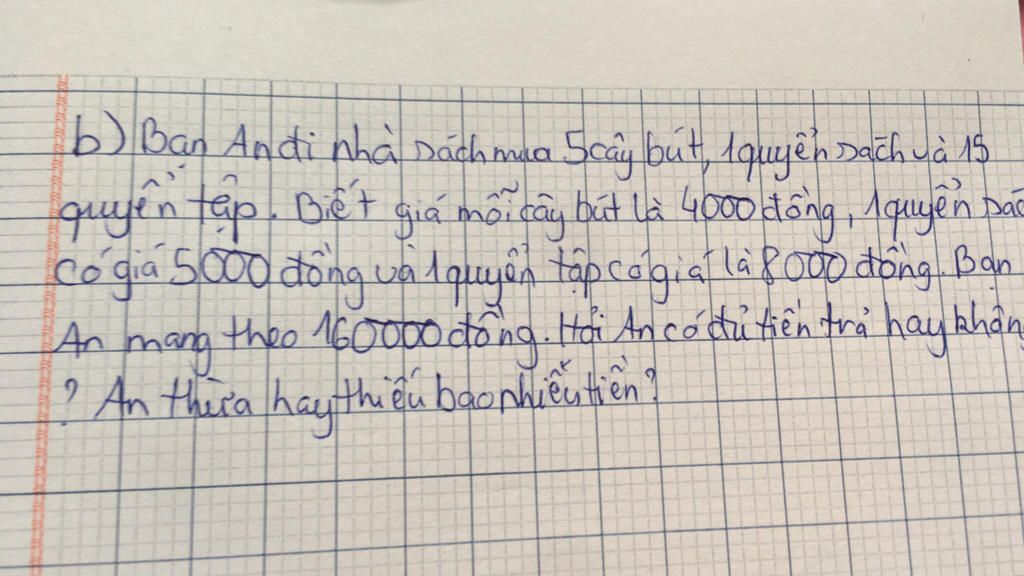 b) Bạn An đi nhà sách mua 5 cây bút, 1 quyển sách và 15
quyển tập. Biết giá mỗi cây bút là 4000 đồng, 1 quyển sác
có giá 5000 đồng và 1 quyển tập có giá là 8000 đồng. Bạn
An mang theo 160000 đồng. Hỏi An có đủ tiền trả hay khôn
? An thừa hay thiếu bao nhiêu tiền?